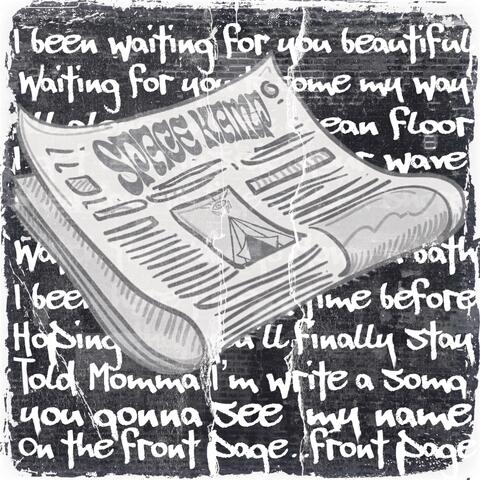 I been waiting for you beautiful
Waiting for you come my way
ean floor
wave
Space Kamp
Wa
path
I bee time before
Hoping you'll finally stay
Told Momma I'm write a song
you gonna see my name
on the front page..front page